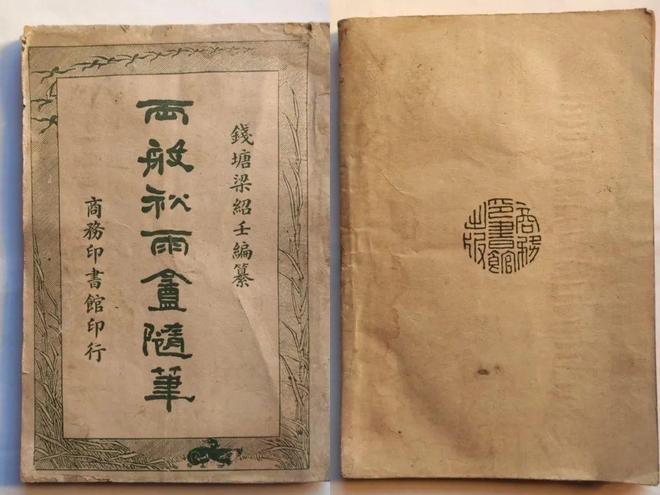 錢塘梁紹壬編纂
兩般秋雨盦隨筆
商務印書館印行
商務
印書館
出版